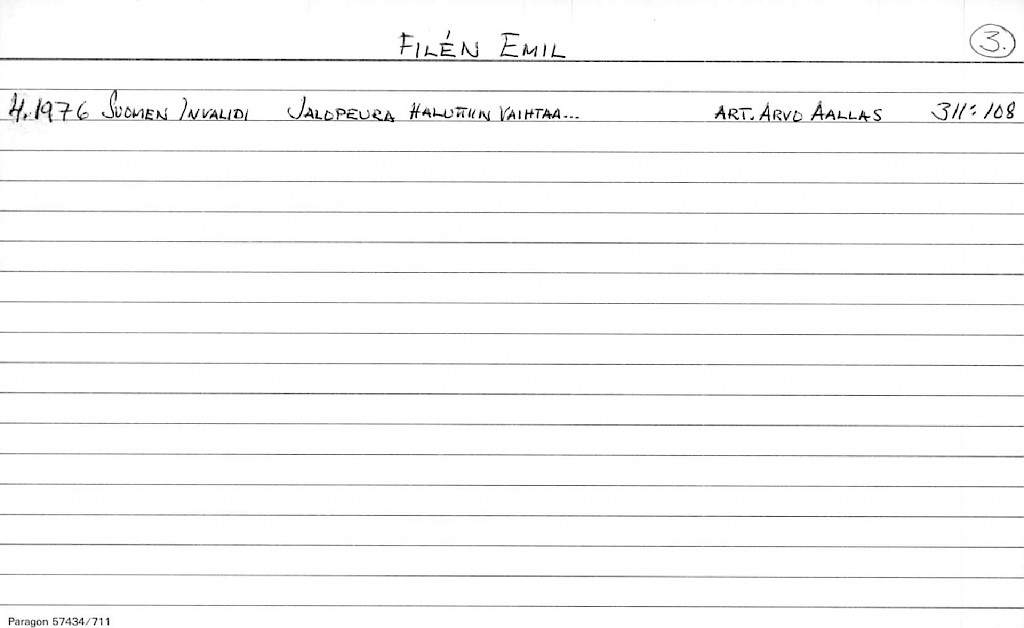 FILÉN EMIL 3.
4.1976 SUOMEN INVALIDI JALOPEURA HALUTTIIN VAIHTAA... ART. ARVO AALLAS 311:108
Paragon 57434/711